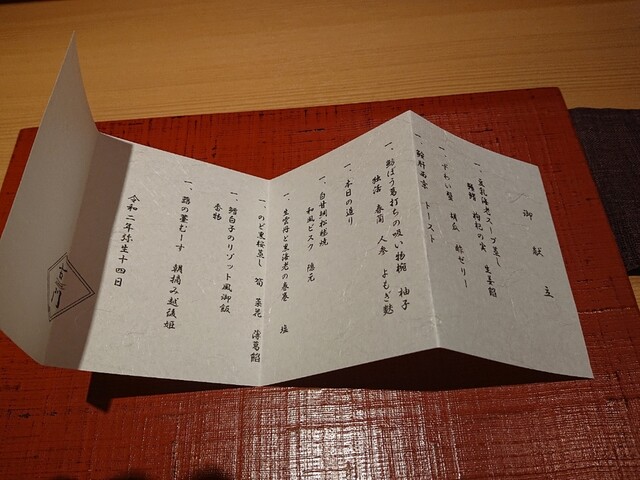 御献立
一、豆乳海老スープ蒸し 生姜餡
枸杞の実
一、ずわい蟹 胡瓜 酢ゼリー
一、鮟肝風 トースト
一、鮎ぼう葛打ちの吸い物椀 柚子
独活 春蘭 人参 よもぎ麩
一、本日の造り
一、白甘鯛松笠焼
和風ビスク 隠元
一、生雲丹と車海老の春巻 塩
一、のど黒桜蒸し 筍 菜花 薄葛餡
一、鱈白子のリゾット風御飯
香物
一、苺の葉むーす 朝摘み越後姫
令和二年弥生十四日